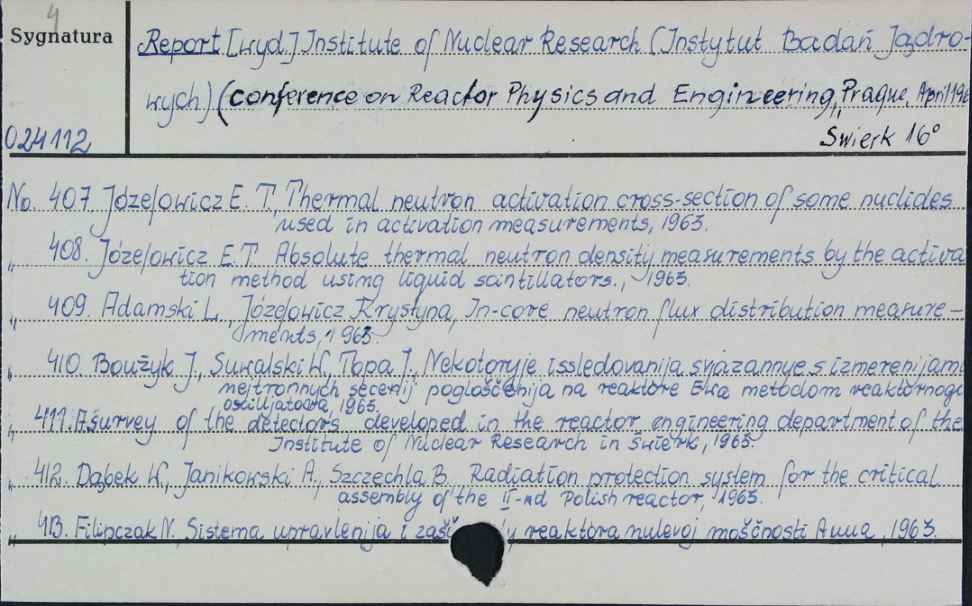 4
Sygnatura
Report [wyd.] Institute of Nuclear Research (Instytut Badań Jądro-
wych) (Conference on Reactor Physics and Engineering, Prague, April 196
024112
Swierk 16°
No. 407. Józefowicz E. T., Thermal neutron activation cross-section of some nuclides
used in activation measurements, 1963.
„ 408. Józefowicz E.T. Absolute thermal neutron density measurements by the activa
tion method using liquid scintillators., 1963.
„ 409. Adamski L., Józefowicz Krystyna, In-core neutron flux distribution measure-
ments, 1963.
„ 410. Boużyk J., Suwalski W., Topa J., Nekotoryje issledovanija svjazannye s izmerenijami
nejtronnych sečenij pogloščenija na reaktore Ewa metodom reaktornogo
oscilljatora, 1965.
„ 411. A survey of the detectors developed in the reactor engineering department of the
Institute of Nuclear Research in Świerk, 1963.
„ 412. Dąbek W., Janikowski A., Szczechla B. Radiation protection system for the critical
assembly of the II-nd Polish reactor, 1963.
„ 413. Filipczak N. Sistema upravlenija i zašč y reaktora nulevoj moščnosti Anna, 1963.